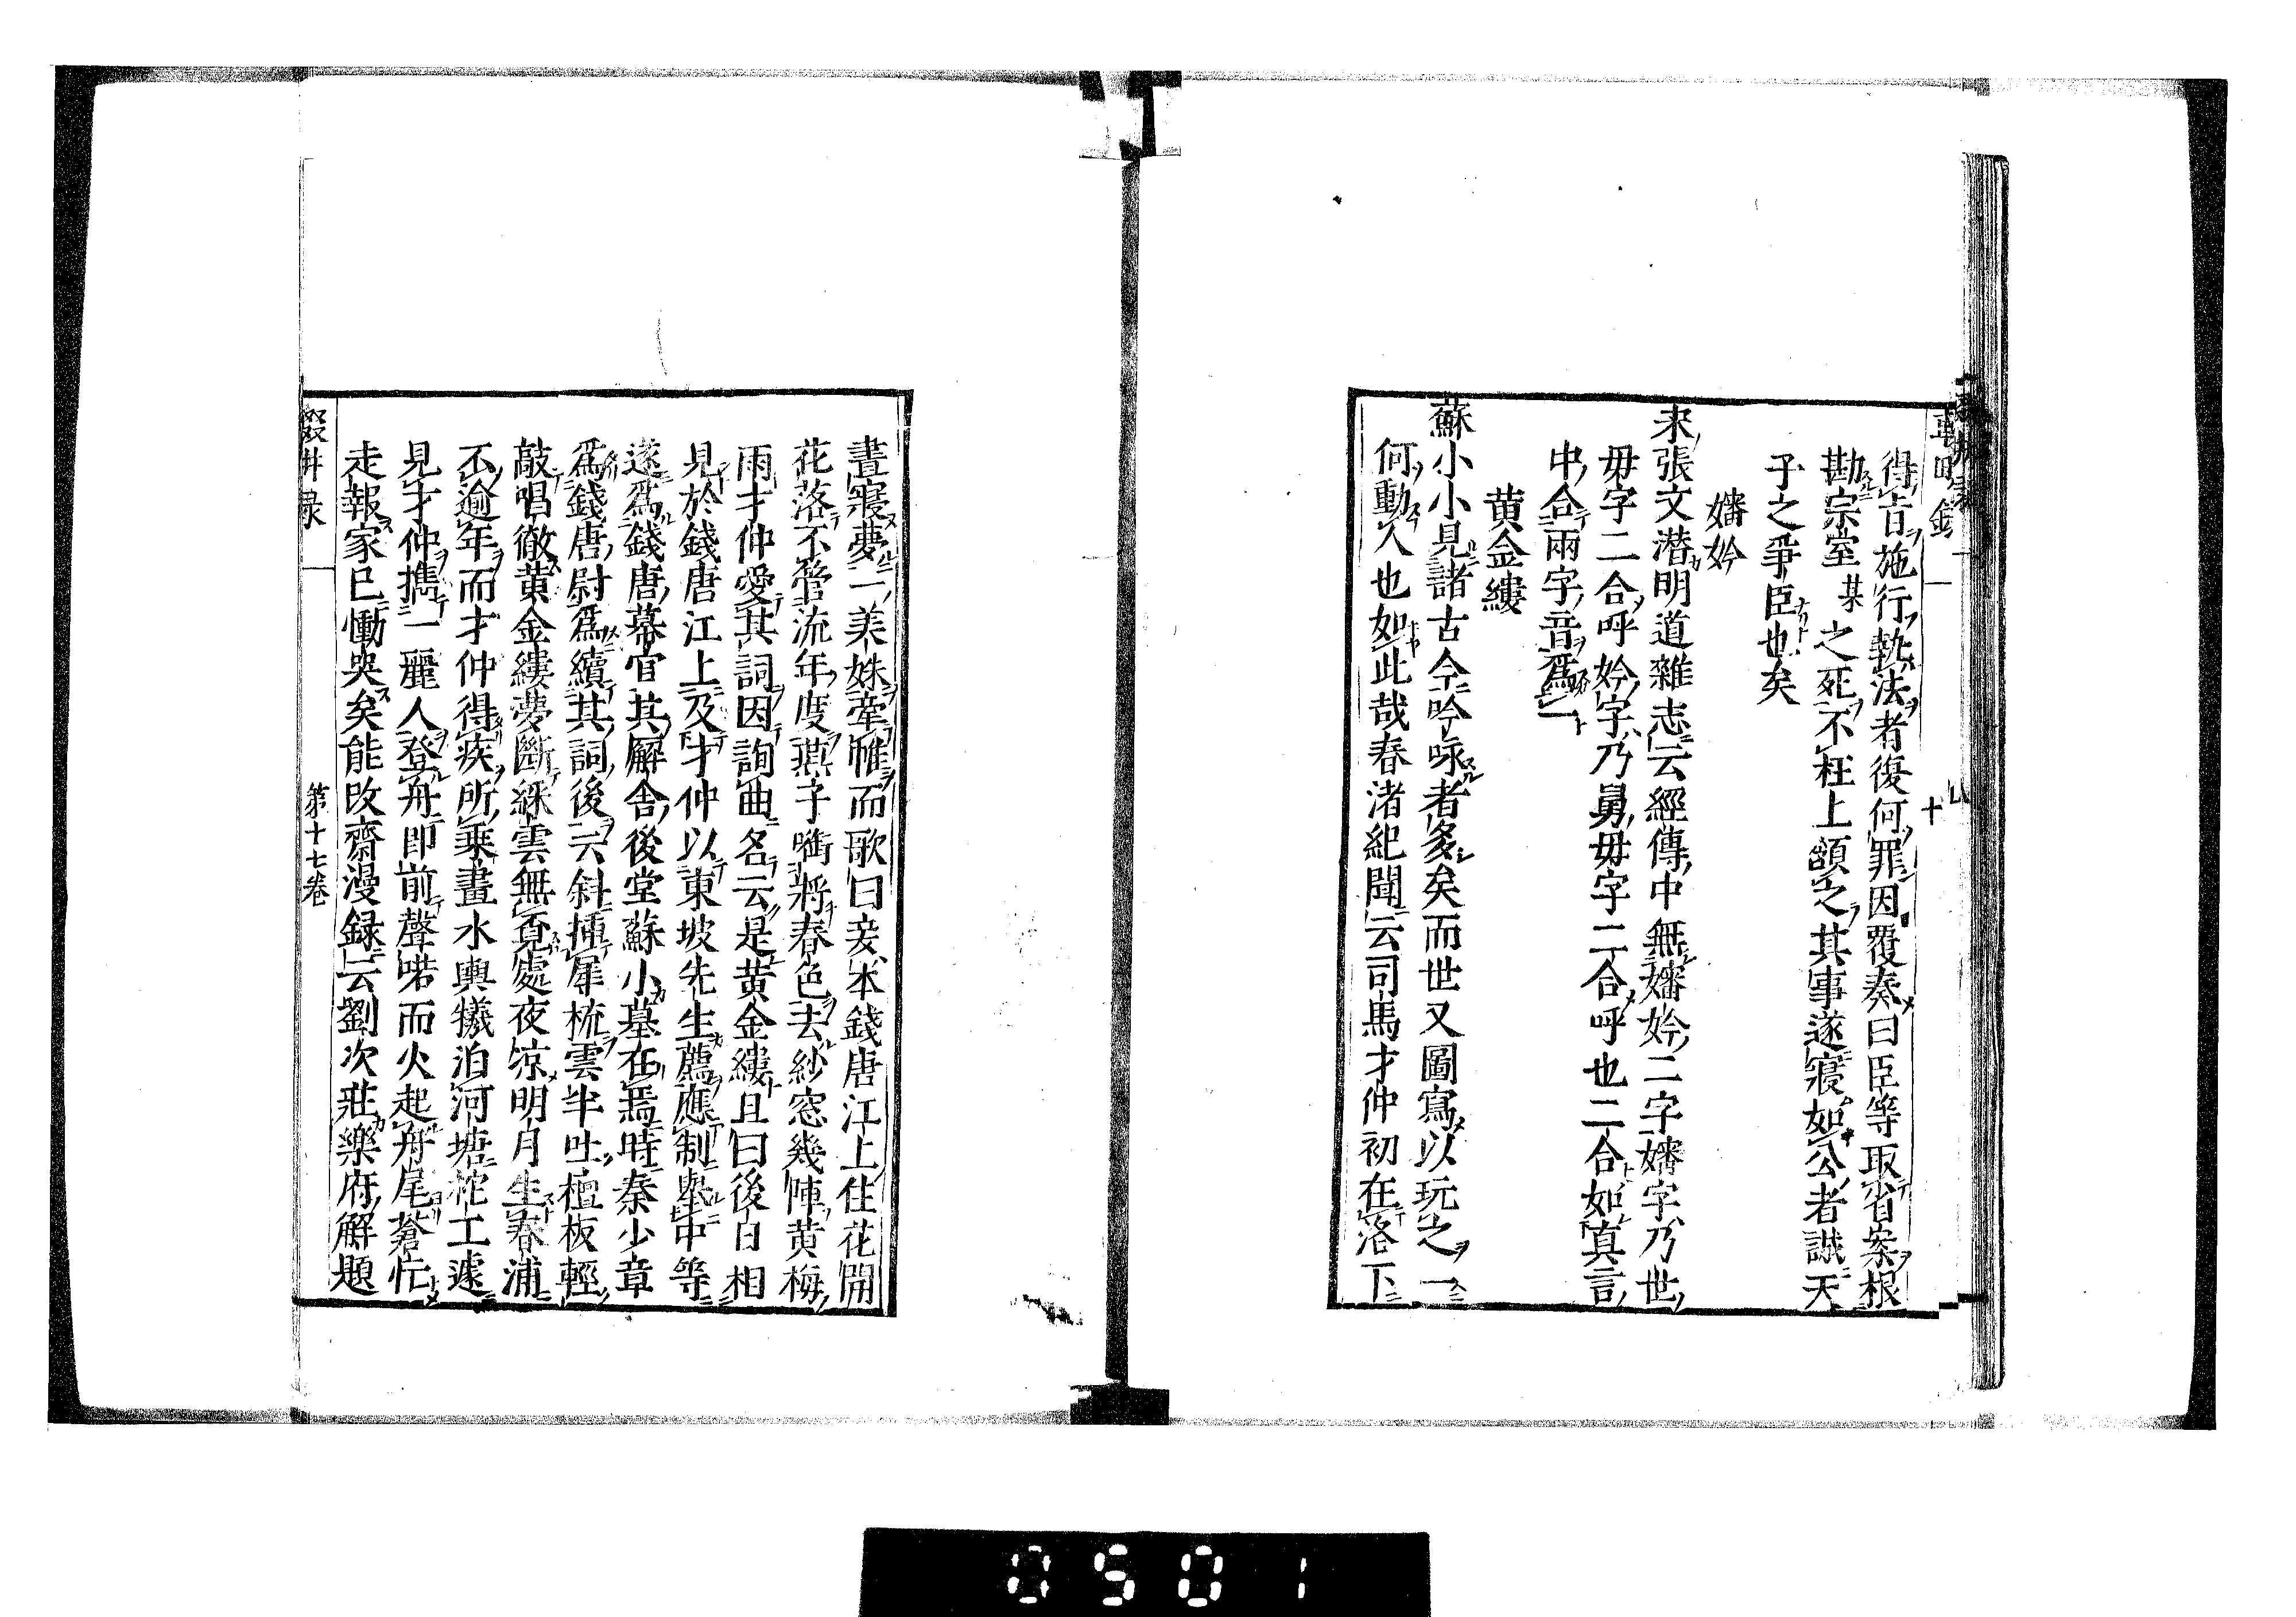 得吉施行執法者復何罪因覆奏曰臣等取省案根
勘宗室某之死不枉上頷之其事遂寢如公者誠天
子之爭臣也矣
嬸妗
宋張文潜明道雜志云經傳中無嬸妗二字嬸字乃世
毋字二合呼妗字乃舅毋字二合呼也二合如真言
中合兩字音爲一
黄金縷
蘇小小見諸古今吟咏者多矣而世又圖寫以玩之一
何動人也如此哉春渚紀聞云司馬才仲初在洛下
晝寢夢一美姝牽帷而歌曰妾本錢唐江上住花開
花落不管流年度燕子啣將春色去紗窓幾陣黄梅
雨才仲愛其詞因詢曲名云是黄金縷且曰後日相
見於錢唐江上及才仲以東坡先生薦應制舉中等
遂爲錢唐幕官其廨舎後堂蘇小墓在焉時秦少章
爲錢唐尉爲續其詞後云斜插犀梳雲半吐檀板輕
敲唱徹黄金縷夢斷綵雲無覓處夜凉明月生春浦
不逾年而才仲得疾所乗畫水輿艤泊河塘柁工遽
見才仲攜一麗人登舟即前聲喏而火起舟尾蒼忙
走報家已慟哭矣能改齋漫録云劉次莊樂府解題
輟耕录
第十七卷
0501